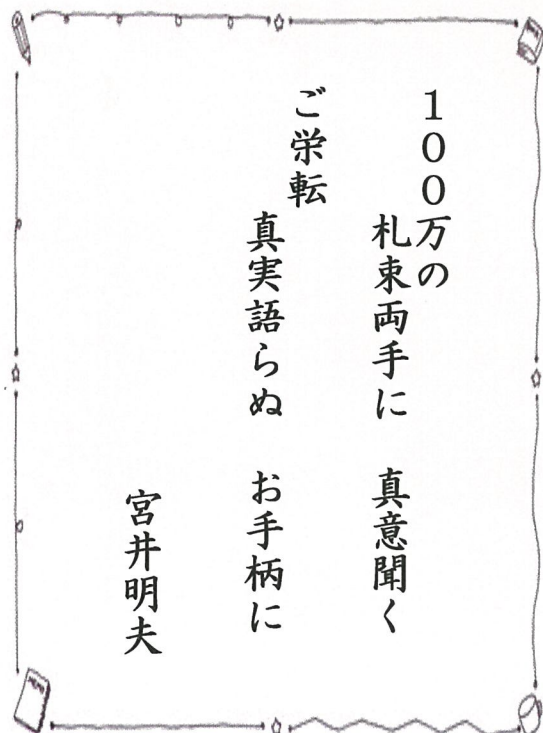 １００万の
札束両手に　真意聞く
ご栄転
真実語らぬ　お手柄に
宮井明夫